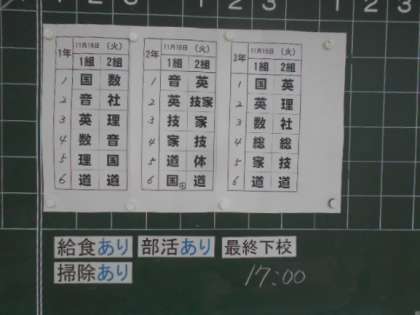 1 2 3
1 2 3
1年 11月18日 (火)
1組 2組
1 国 数
2 音 社
3 英 理
4 数 音
5 理 国
6 道 道
2年 11月18日 (火)
1組 2組
1 音 英
2 英 技家
3 技 家
4 家 技
5 道 体
6 国 道
3年 11月18日 (火)
1組 2組
1 国 英
2 英 理
3 数 社
4 総 総
5 家 技
6 道 道
給食あり 部活あり 最終下校
掃除あり 17:00